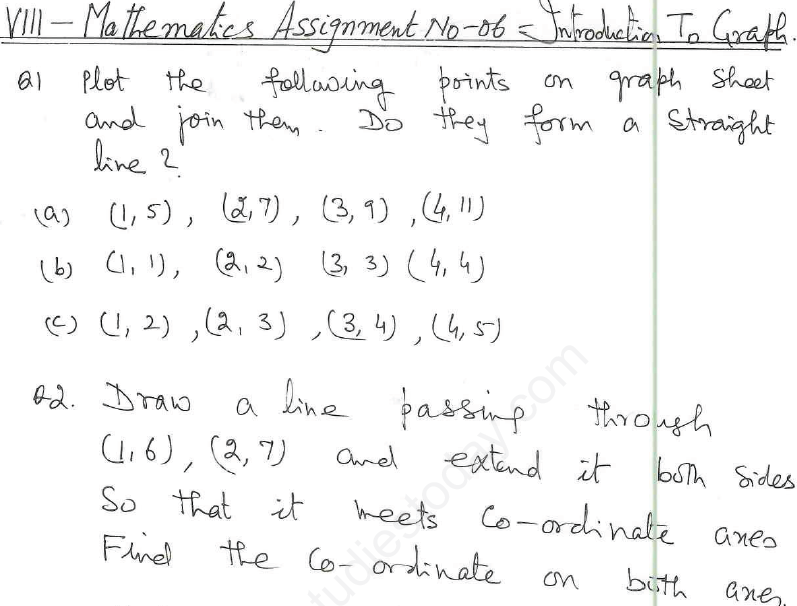 VIII - Mathematics Assignment No-06 = Introduction To Graph.
Q1 Plot the following points on graph sheet
and join them. Do they form a straight
line ?
(a) (1, 5), (2, 7), (3, 9), (4, 11)
(b) (1, 1), (2, 2) (3, 3) (4, 4)
(c) (1, 2), (2, 3), (3, 4), (4, 5)
Q2. Draw a line passing through
(1, 6), (2, 7) and extend it both sides
So that it meets Co-ordinate axes
Find the Co-ordinate on both axes.
studiestoday.com